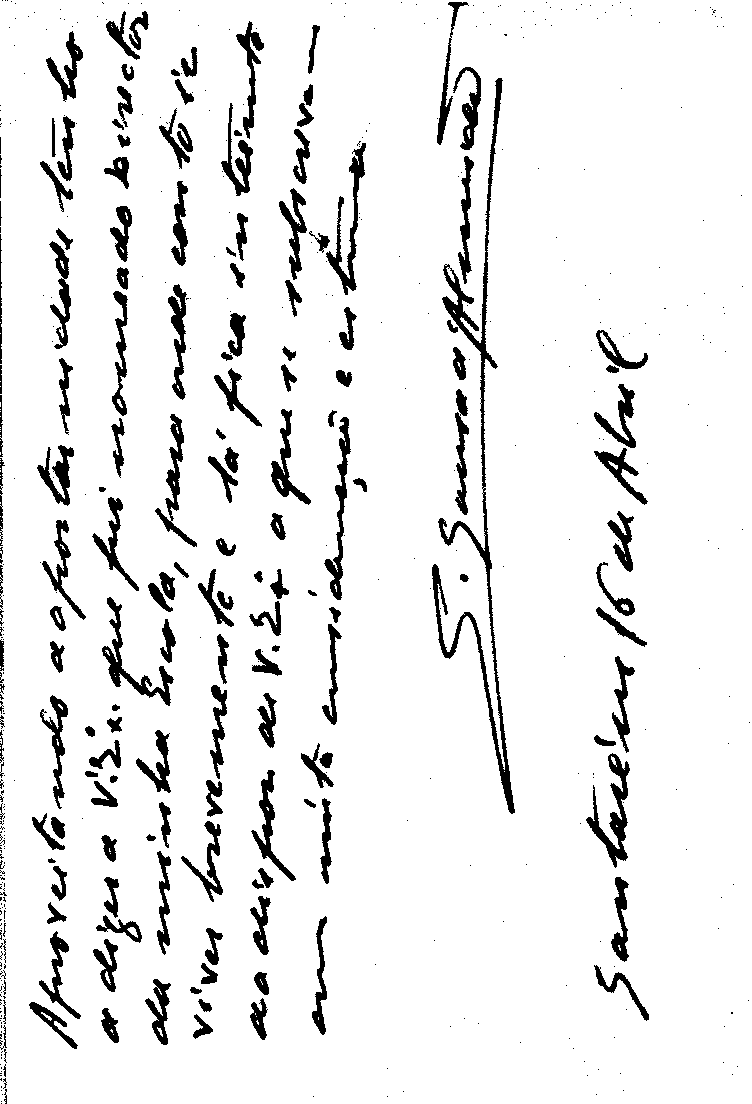 Aproveitando a oportunidade tenho
a dizer a V. Ex. que fui nomeado Director
da minha Escola, para onde conto ir
viver brevemente e lá fica inteiramente
ao dispor de V. Ex.ª o que se subscreve
com muita consideração e estima
S.
Santarém 16 de Abril